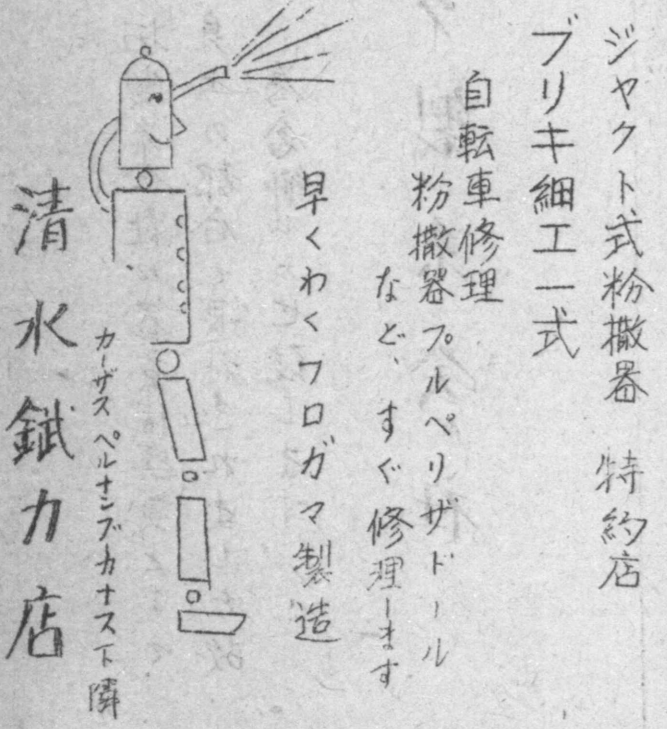 ジャクト式粉撒器 特約店
ブリキ細工一式
自転車修理
粉撒器プルペリザドール
など、すぐ修理します
早くわくフロガマ製造
カーザスペルナンブカナス下隣
清水鉞力店